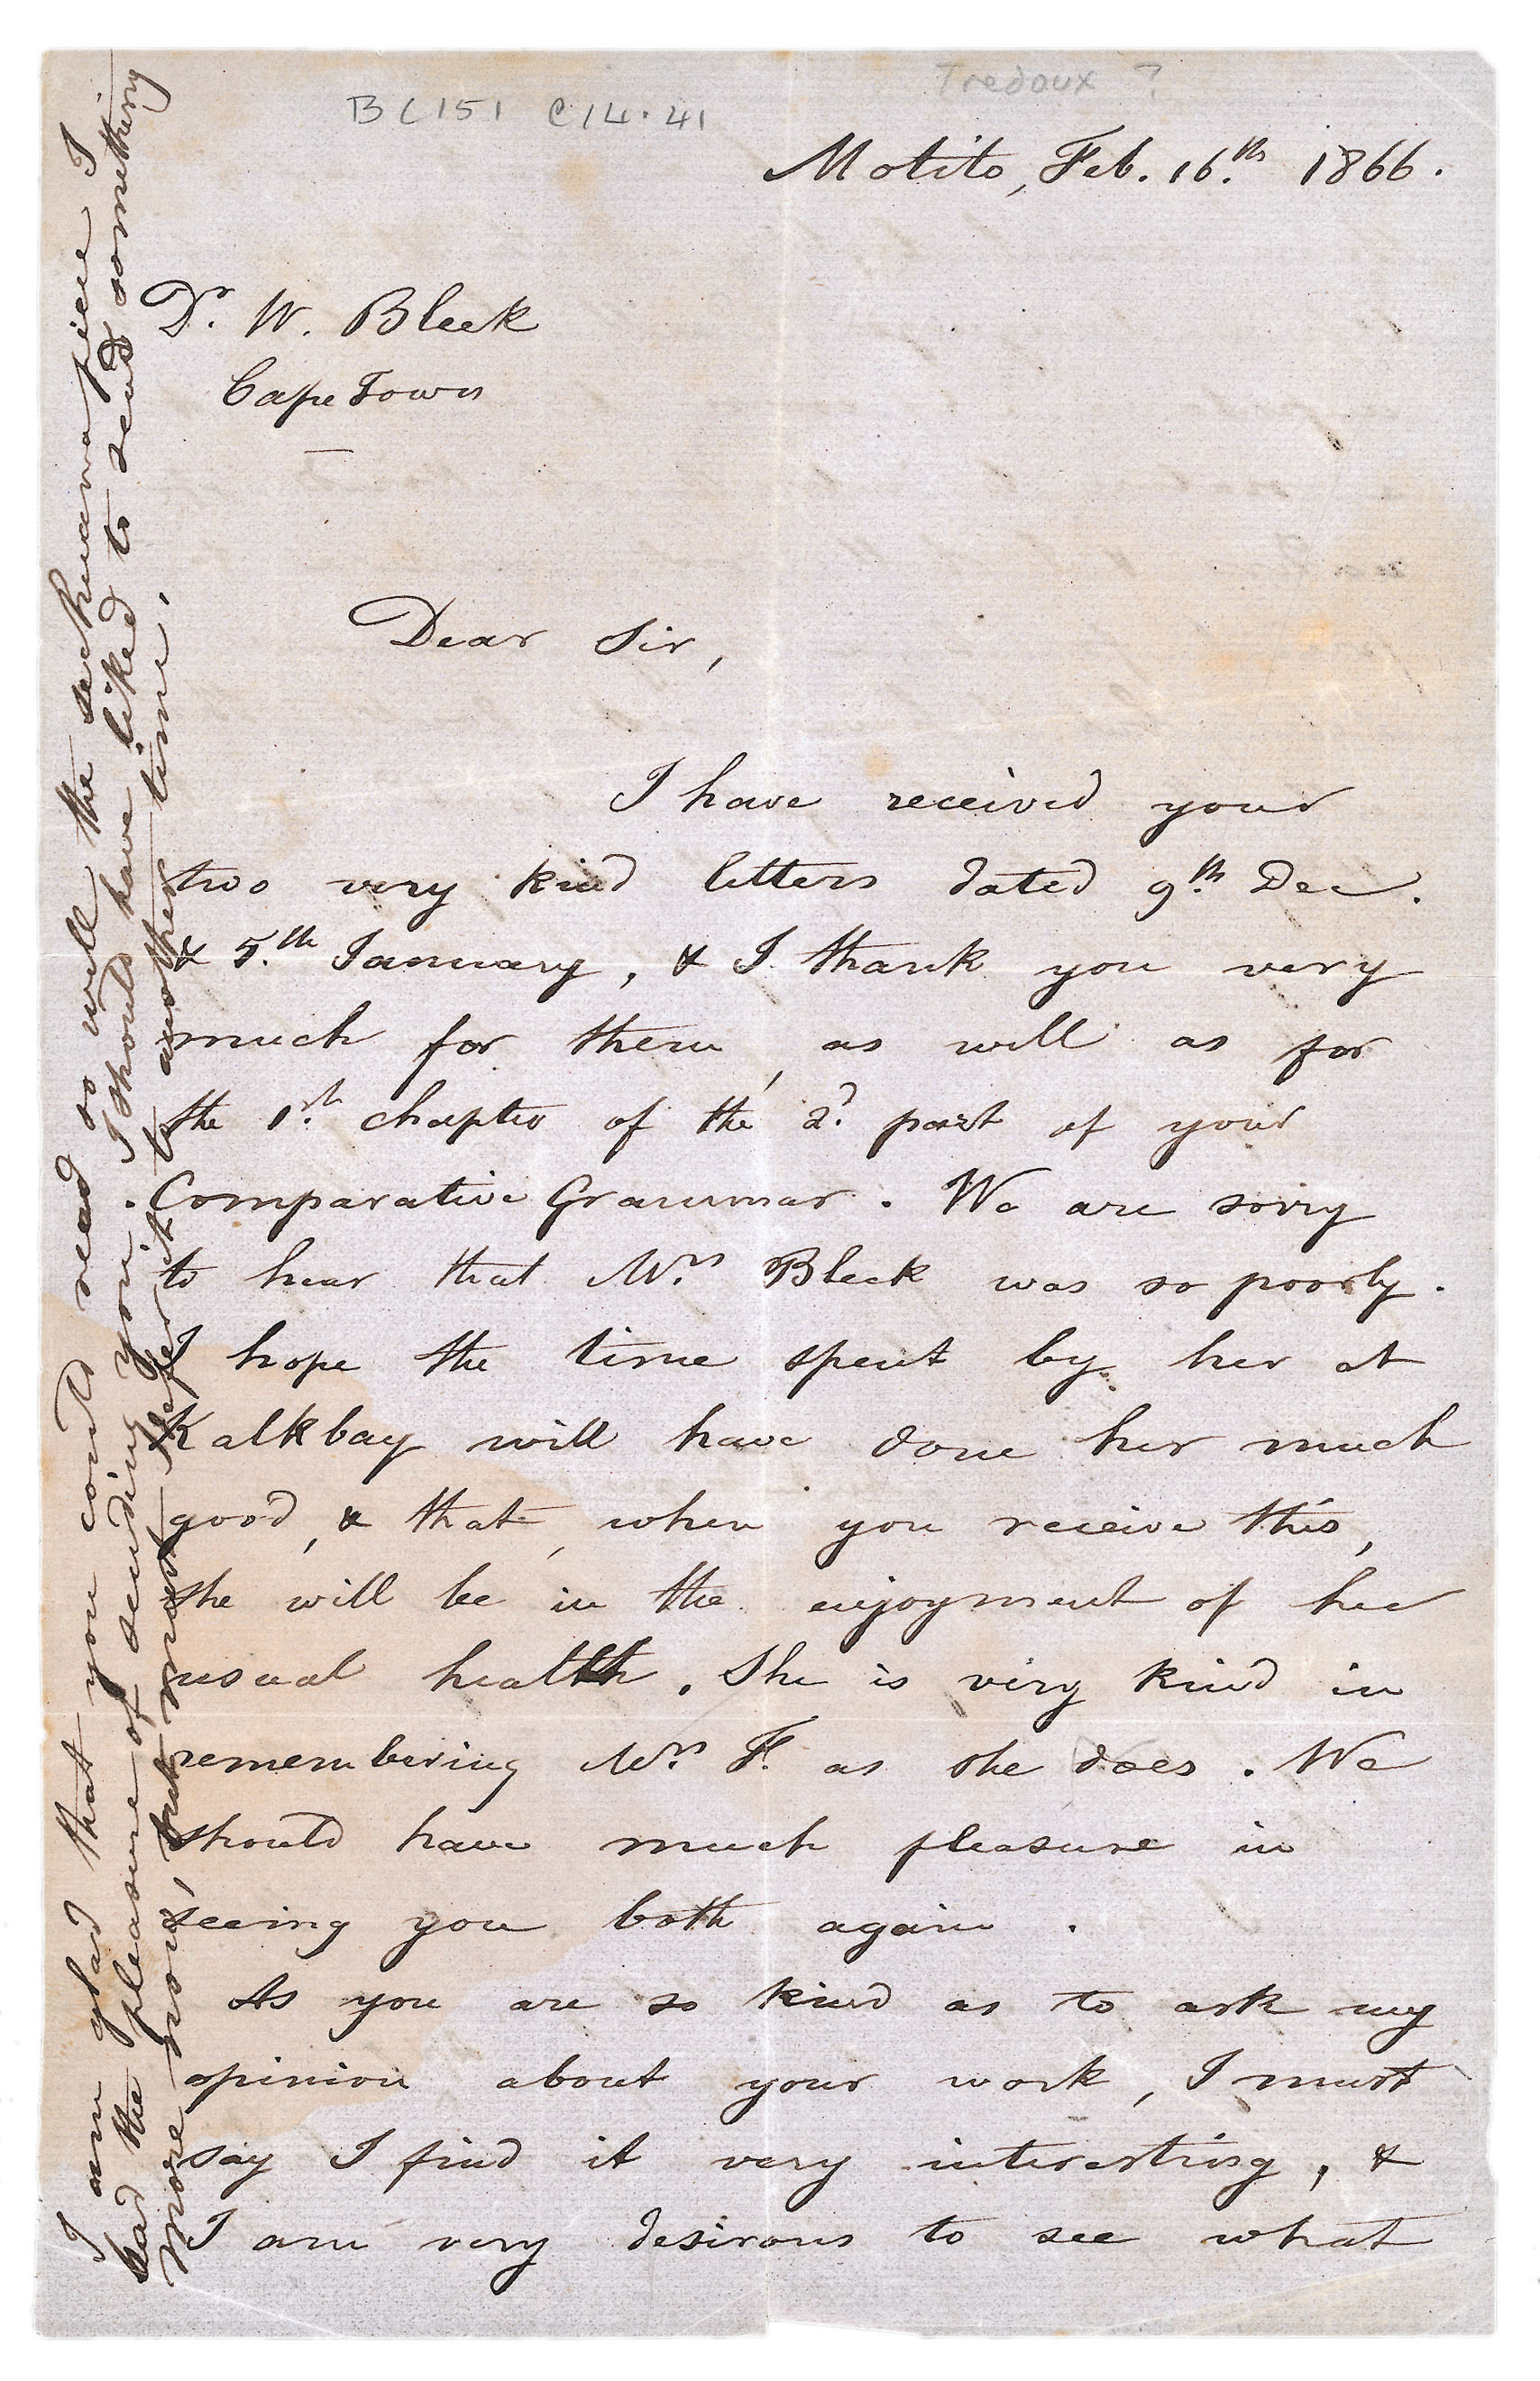 Tredoux ?
BC151 C14.41
Motito, Feb. 16.th 1866.
Dr. W. Bleek
Cape Town
Dear Sir,
I have received your
two very kind letters dated 9.th Dec.
& 5.th January, & I thank you very
much for them, as well as for
the 1.st chapter of the 2.d part of your
Comparative Grammar. We are sorry
to hear that Mrs. Bleek was so poorly.
I hope the time spent by her at
Kalkbay will have done her much
good, & that, when you receive this,
she will be in the enjoyment of her
usual health. She is very kind in
remembering Mrs. F. as she does. We
should have much pleasure in
seeing you both again.
As you are so kind as to ask my
opinion about your work, I must
say I find it very interesting, &
I am very desirous to see what
I am glad that you could read so well the sechuana piece I
had the pleasure of sending you. I should have liked to send something
more now, but must defer it to another time.